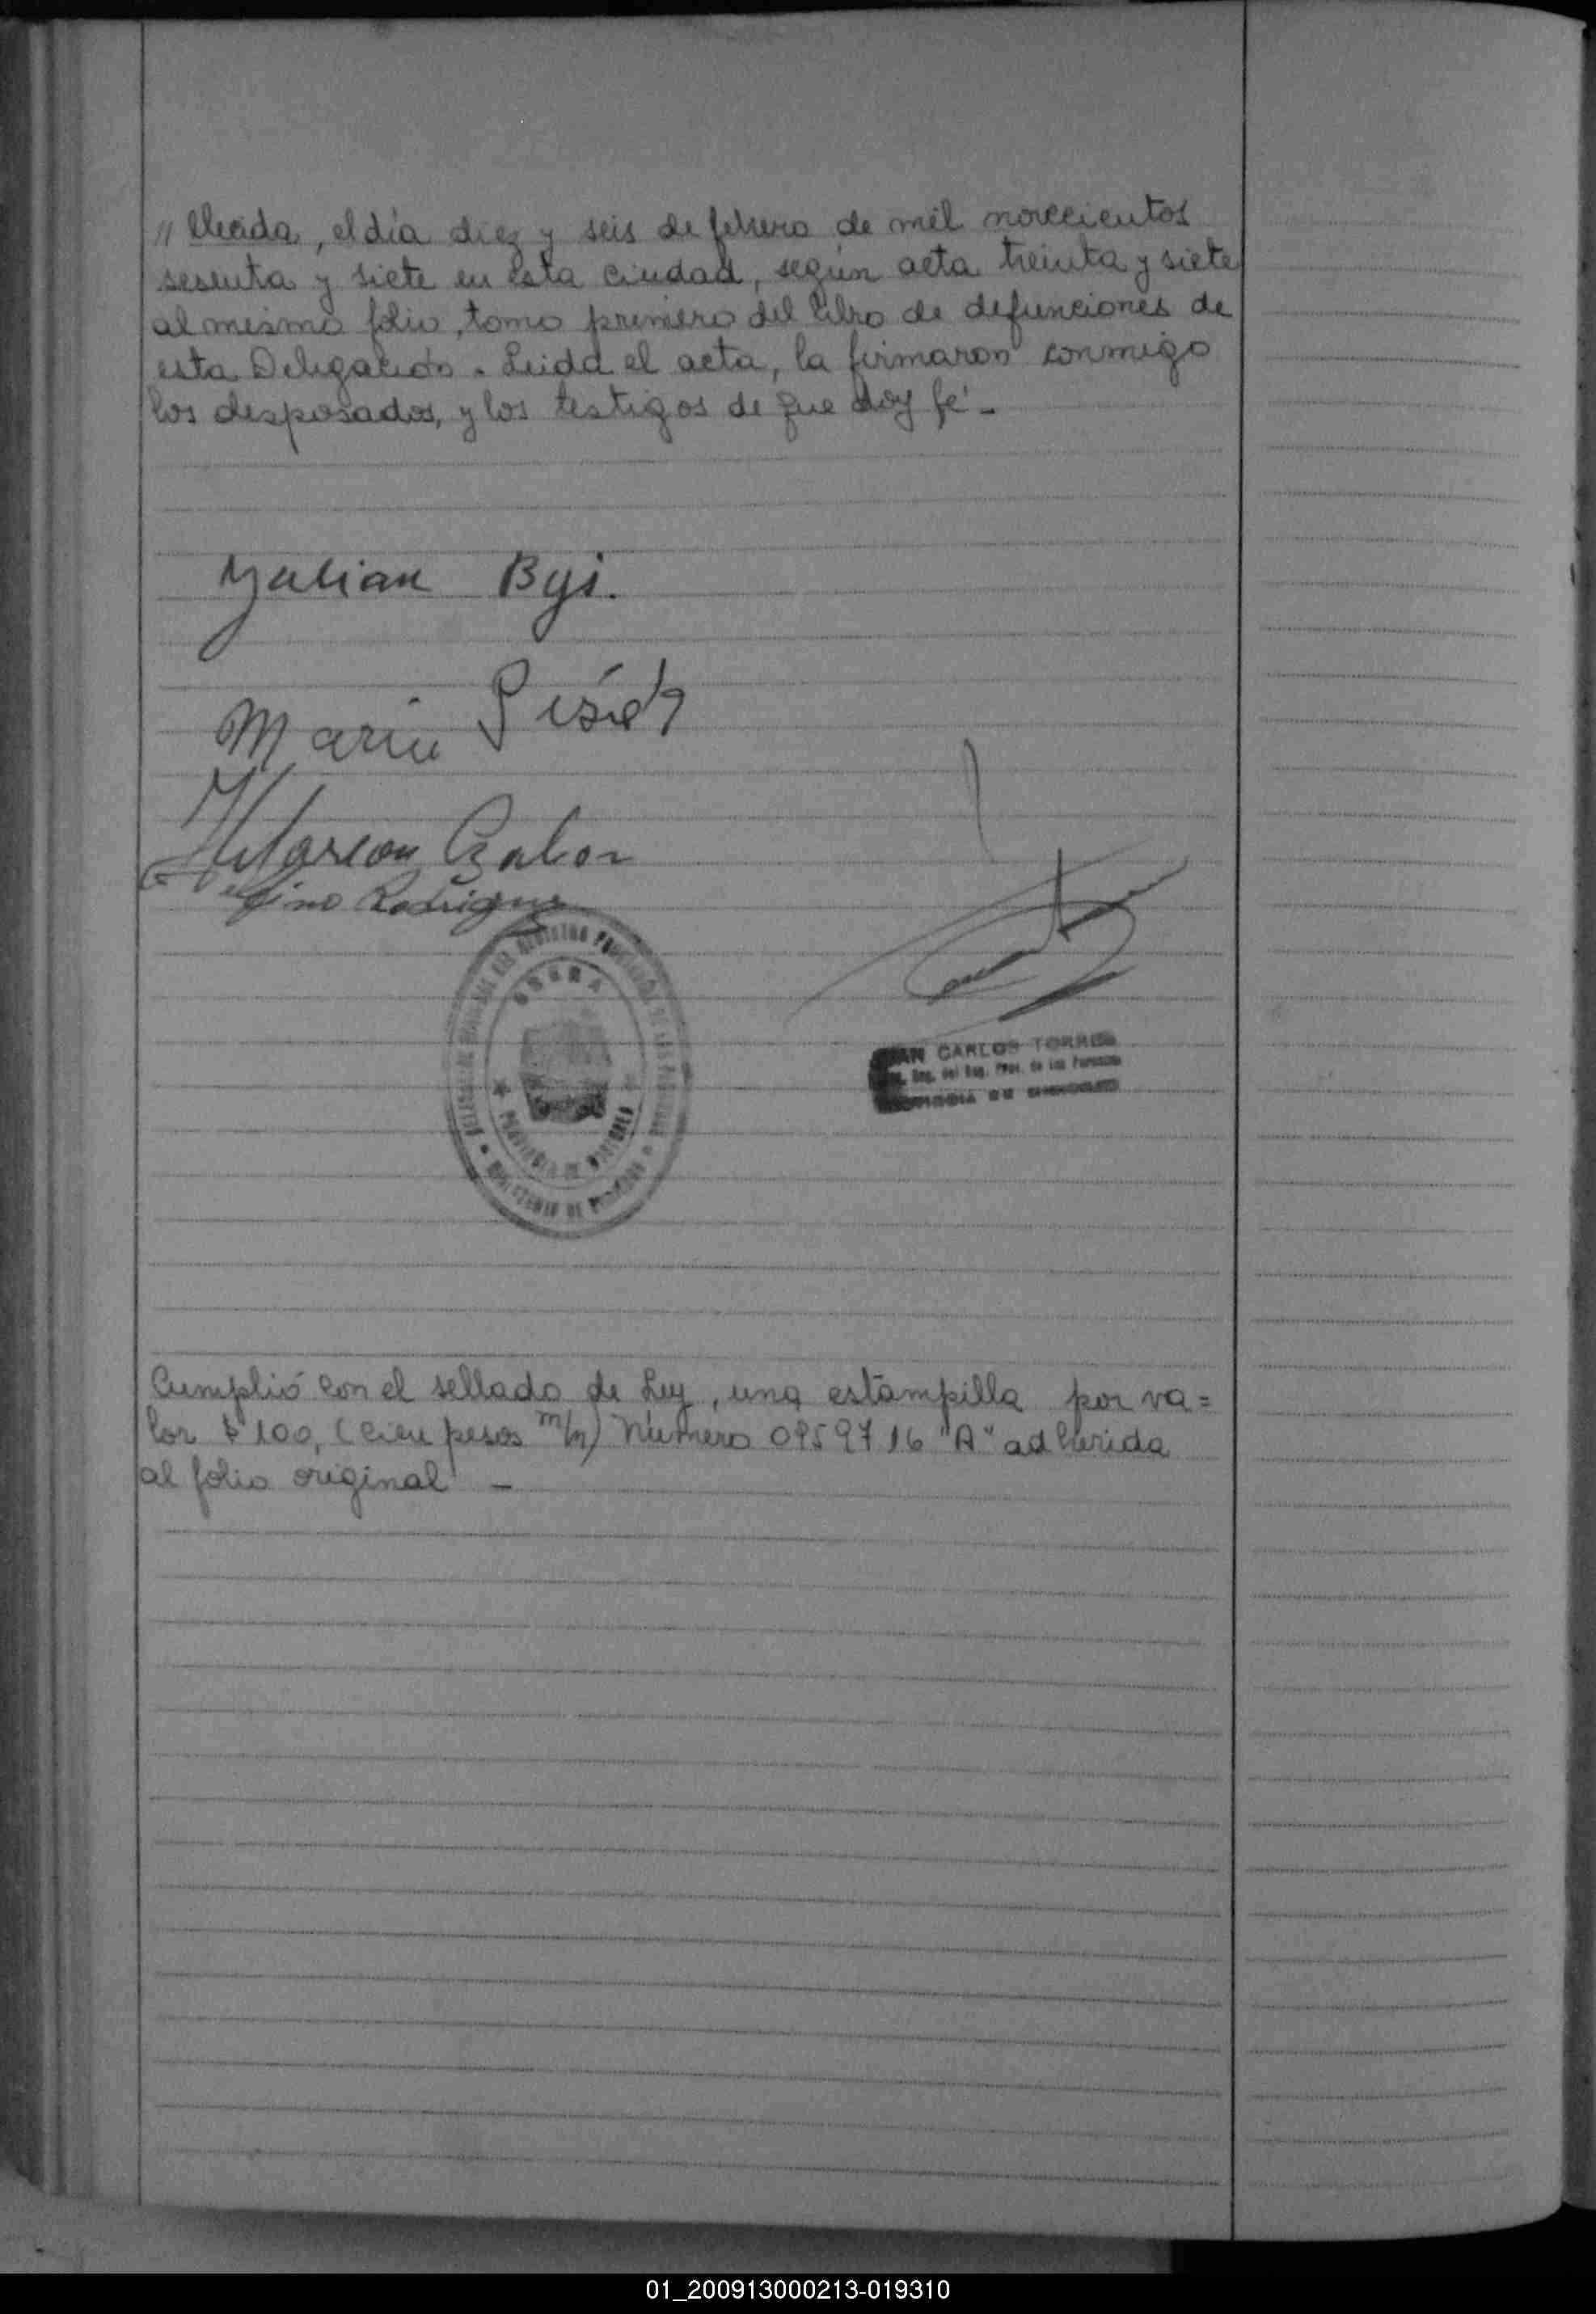 // llecida, el día diez y seis de febrero de mil novecientos
sesenta y siete en esta ciudad, según acta treinta y siete
al mismo folio, tomo primero del libro de defunciones de
esta Delegación. Leida el acta, la firmaron conmigo
los desposados, y los testigos de que doy fé.-
Yulian Byj.
Maria
Rodriguez
REGISTRO PROVINCIAL DE LAS PERSONAS
OBERA
PROVINCIA DE MISIONES
MINISTERIO DE GOBIERNO
JUAN CARLOS TORRES
del Reg. Prov. de las Personas
PROVINCIA DE MISIONES
Cumplió con el sellado de Ley, una estampilla por va=
lor $ 100, (cien pesos m/n) Número 0959716 "A" adherida
al folio original -
01_200913000213-019310